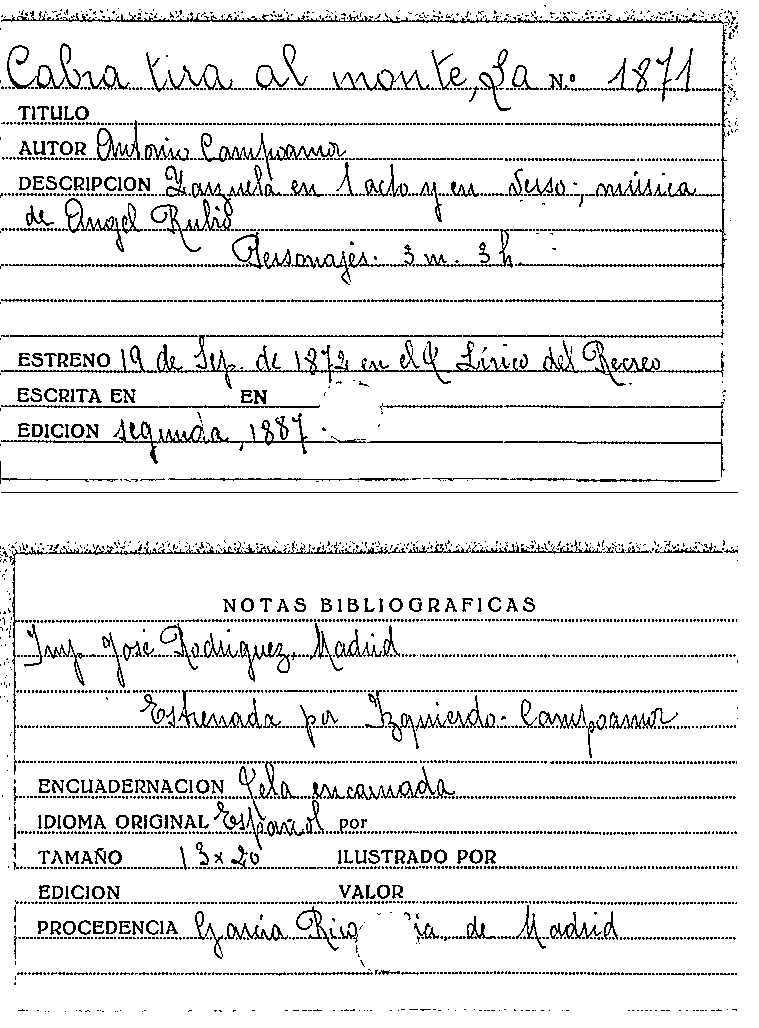 Cabra tira al monte, La N.º 1871
TITULO
AUTOR Antonio Campoamor
DESCRIPCION Zarzuela en 1 acto y en verso; música
de Angel Rubio
Personajes. 3 m. 3 h.
ESTRENO 19 de Sep. de 1872 en el T. Lírico del Recreo
ESCRITA EN EN
EDICION segunda, 1887.
NOTAS BIBLIOGRAFICAS
Imp. José Rodriguez, Madrid
Estrenada por Izquierdo-Campoamor
ENCUADERNACION Tela encarnada
IDIOMA ORIGINAL Español por
TAMAÑO 13 x 20 ILUSTRADO POR
EDICION VALOR
PROCEDENCIA García Rico ía. de Madrid